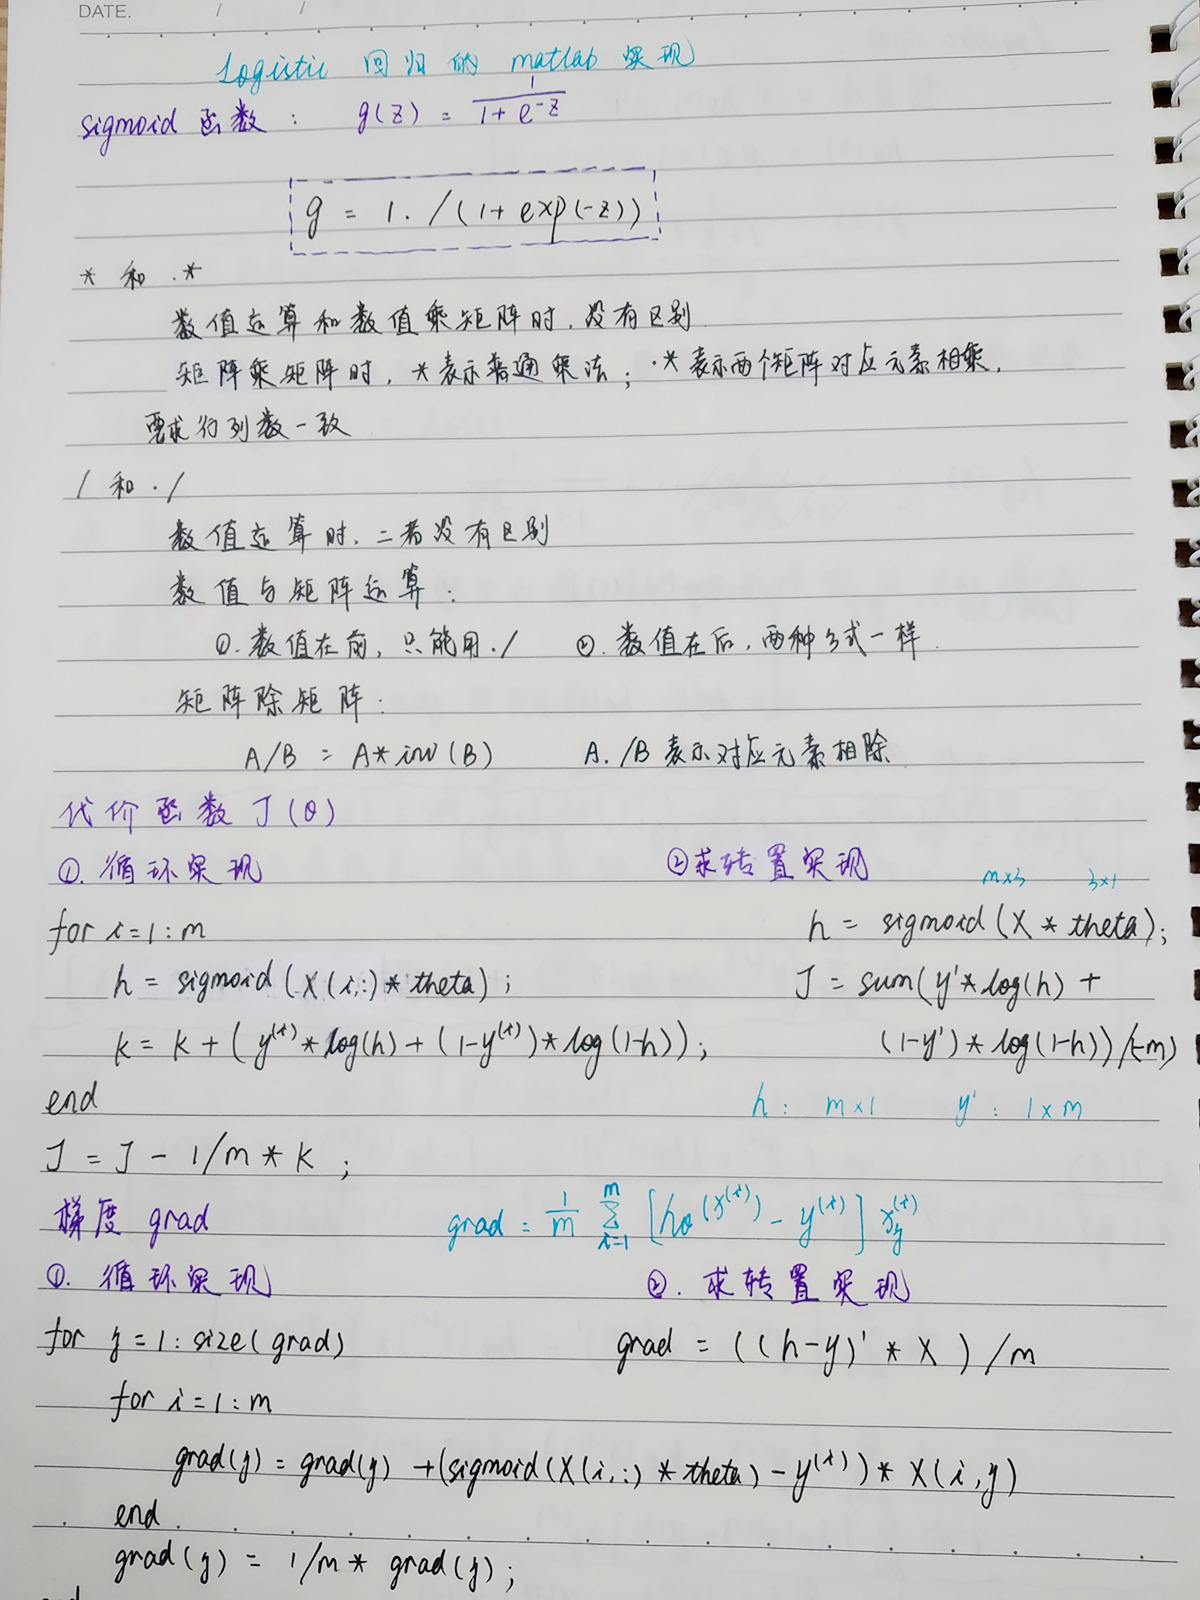 DATE. / /
Logistic 回归的 matlab 实现
sigmoid 函数: g(z) = 1/(1 + e^-z)
g = 1. / (1 + exp(-z))
* 和 .*
数值运算和数值乘矩阵时,没有区别
矩阵乘矩阵时,*表示普通乘法; .*表示两个矩阵对应元素相乘,
要求行列数一致
/ 和 ./
数值运算时,二者没有区别
数值与矩阵运算:
①.数值在前,只能用./ ②.数值在后,两种方式一样.
矩阵除矩阵:
A/B = A*inv(B) A./B 表示对应元素相除
代价函数 J(θ)
①.循环实现 ②求转置实现
m×3 3×1
for i=1:m h = sigmoid(X * theta);
h = sigmoid(X(i,:)*theta); J = sum(y'*log(h) +
k = k + (y^(i)*log(h) + (1-y^(i))*log(1-h)); (1-y')*log(1-h))/(-m)
end h: m×1 y': 1×m
J = J - 1/m * k ;
梯度 grad grad = 1/m Σ_{i=1}^{m} [hθ(x^(i)) - y^(i)] x_j^(i)
①. 循环实现 ②. 求转置实现
for j=1:size(grad) grad = ((h-y)' * X ) /m
for i=1:m
grad(j) = grad(j) +(sigmoid(X(i,:) * theta) - y^(i)) * X(i,j)
end
grad(j) = 1/m * grad(j);